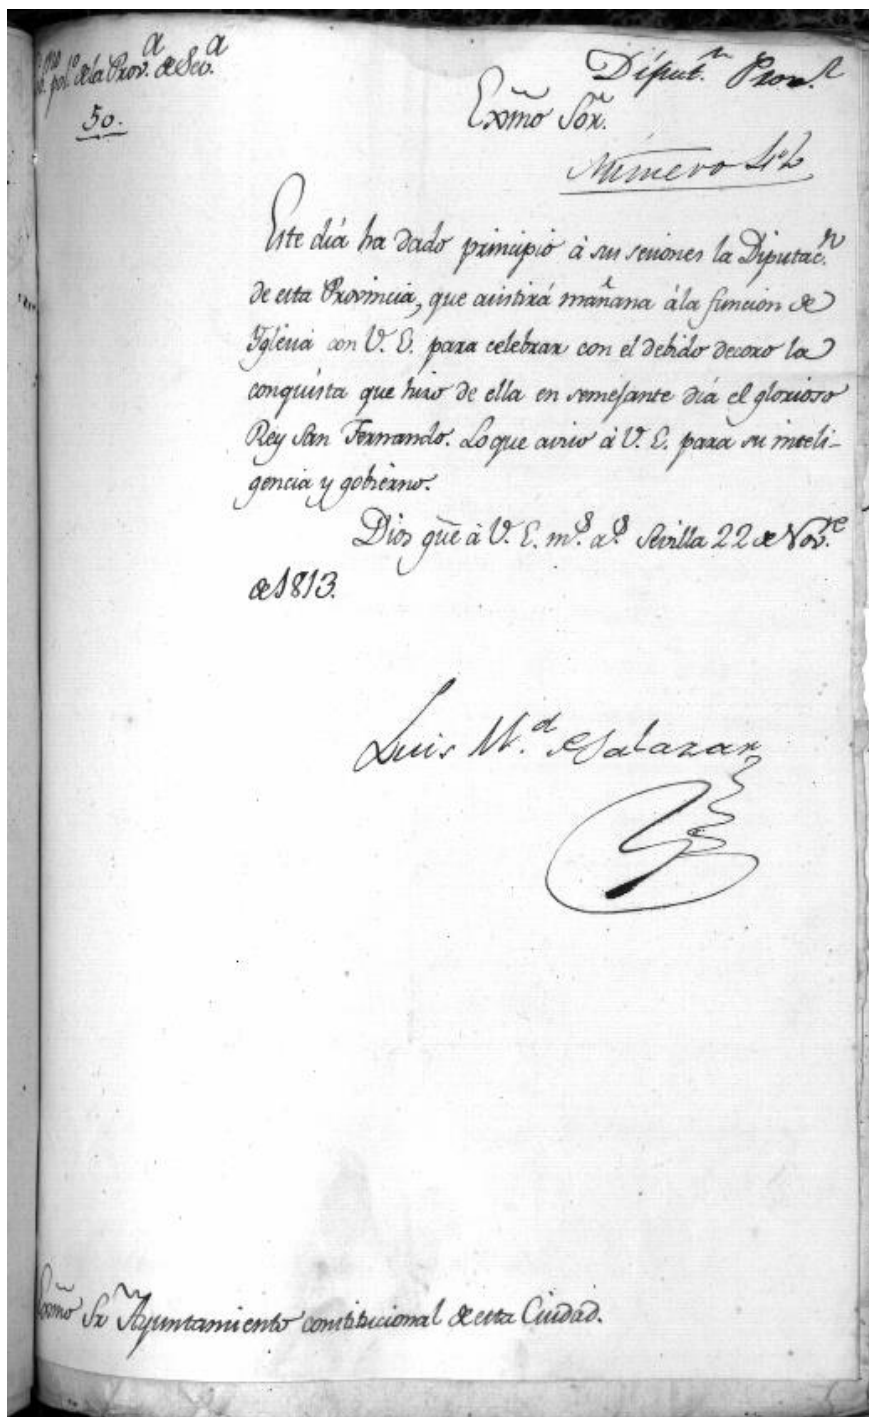 pol.^co de la Prov.^a de Sev.^a
50.
Diput.^n Prov.^l
Exmõ Sõr.
Número
Este diá ha dado principio á sus sesiones la Diputac.^n
de esta Provincia, que asistirá mañana á la funcion de
Yglesia con V. E. para celebrar con el debido decoro la
conquista que hizo de ella en semejante diá el glorioso
Rey San Fernando. Lo que aviso á V. E. para su inteli-
gencia y gobierno.
Dios gũe á V. E. m.^s a.^s Sevilla 22 de Nov.^re
de 1813.
Luis M.^a de Salazar
Exmõ Sr Ayuntamiento constitucional de esta Ciudad.